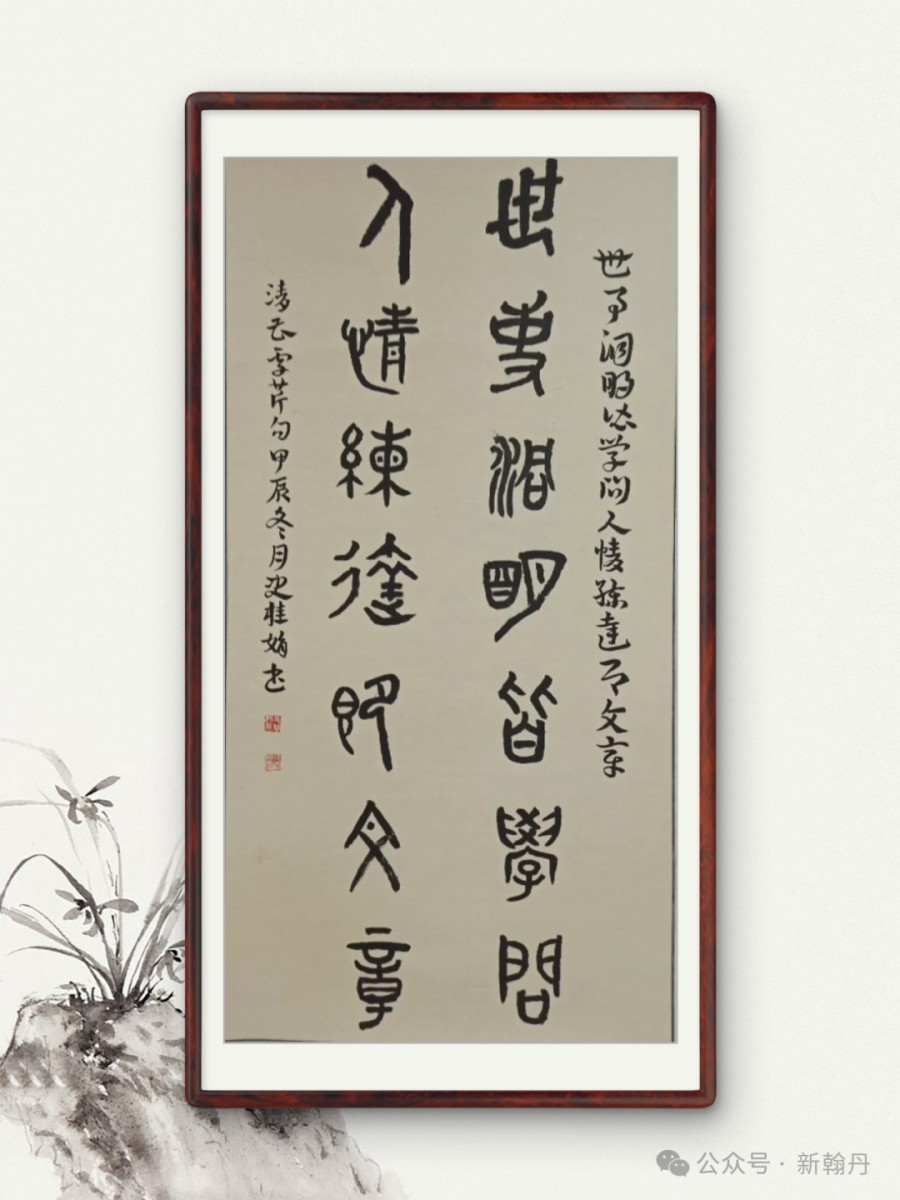 世事洞明皆学问人情练达即文章
世事洞明皆學問
人情練達即文章
清曹雪芹句甲辰冬月史桂娟书
公众号 · 新翰丹